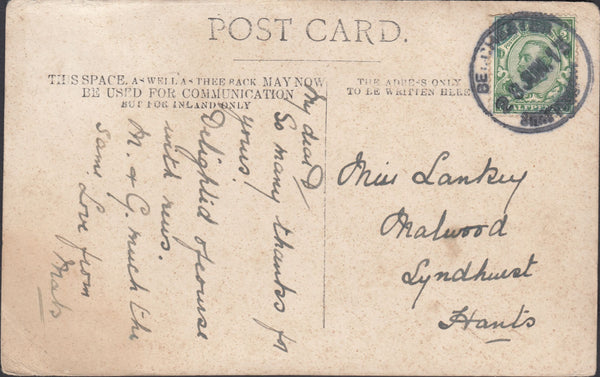 POST CARD.
THIS SPACE, AS WELL AS THEE BACK MAY NOW
BE USED FOR COMMUNICATION
BUT FOR INLAND ONLY
THE ADRES ONLY
TO BE WRITTEN HERE
My dear D
So many thanks for
yours!
Delighted of course
with news.
M. & G. much the
same. Love from
Mab
Miss Lankey
Malwood
Lyndhurst
Hants